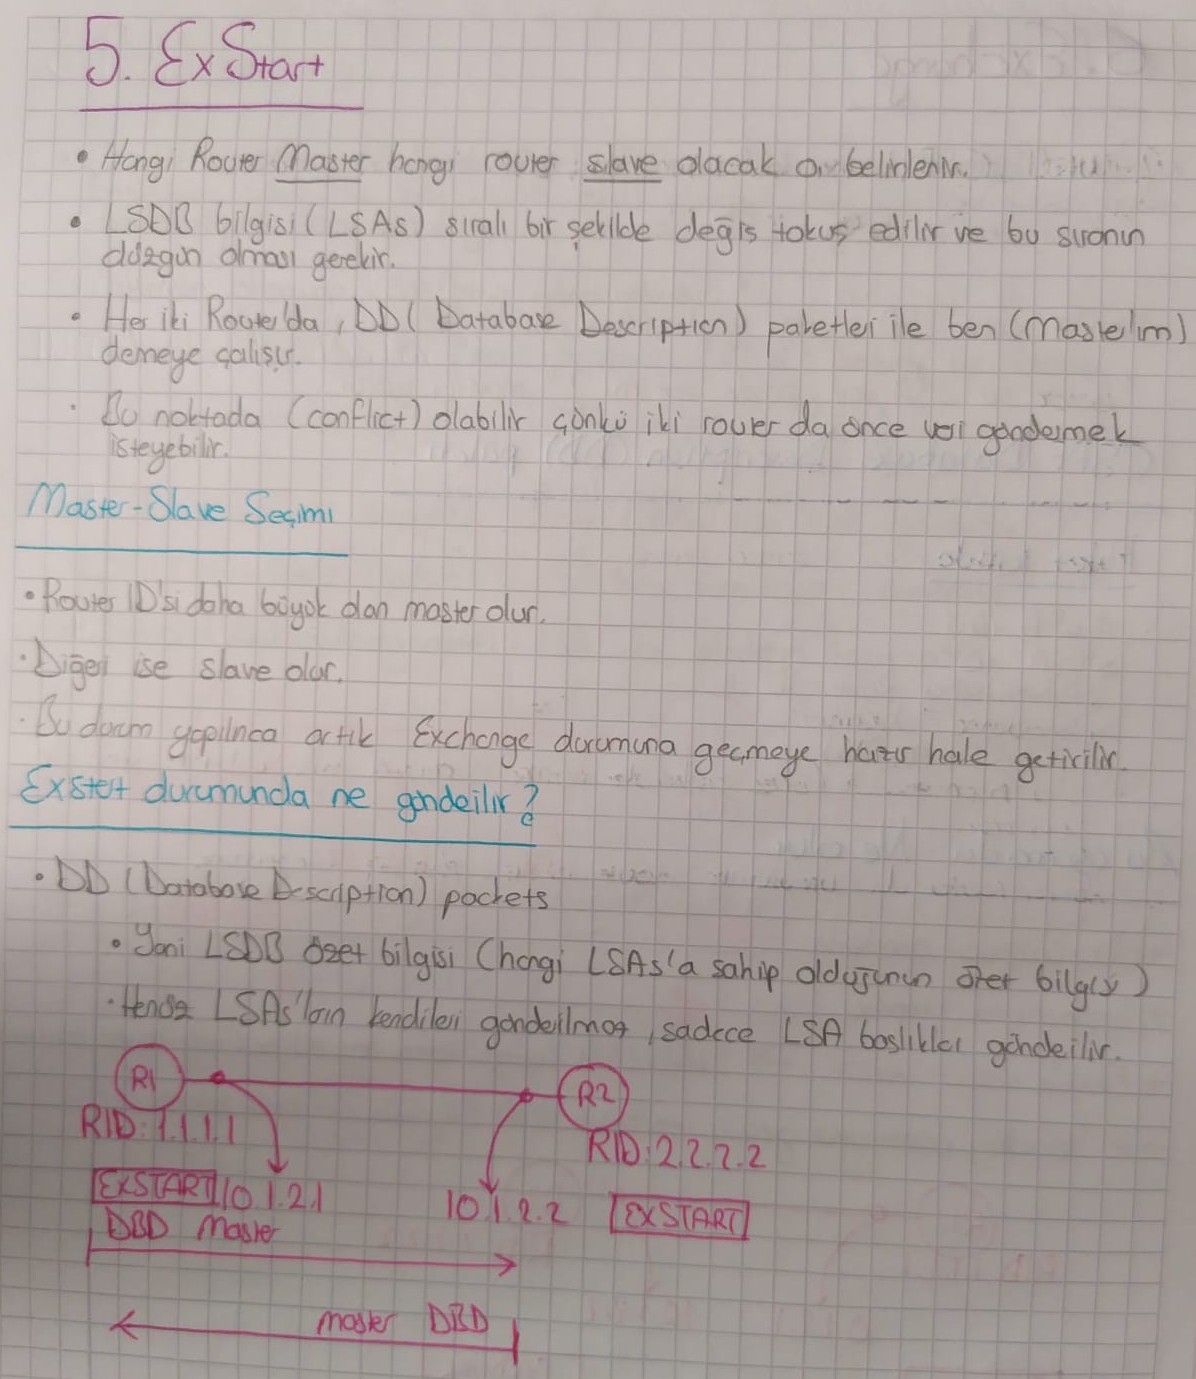 5. ExStart
• Hangi Router Master hangi router slave olacak o belirlenir.
• LSDB bilgisi (LSAs) sıralı bir şekilde değiş tokuş edilir ve bu sıranın
düzgün olması gerekir.
• Her iki Router'da, DD( Database Description) paketleri ile ben (Master'ım)
demeye çalışır.
• Bu noktada (conflict) olabilir çünkü iki router da önce veri göndermek
isteyebilir.
Master-Slave Seçimi
• Router ID'si daha büyük olan master olur.
• Diğeri ise slave olur.
• Bu durum yapılınca artık Exchange durumuna geçmeye hazır hale getirilir.
Exstart durumunda ne gönderilir?
• DD (Database Description) packets
• Yani LSDB özet bilgisi (hangi LSAs'a sahip olduğunun özet bilgisi)
• Henüz LSAs'ların kendileri gönderilmez, sadece LSA başlıkları gönderilir.
R1 R2
RID: 1.1.1.1
RID: 2.2.2.2
EXSTART 10.1.2.1 10.1.2.2 EXSTART
DBD Master
master DBD